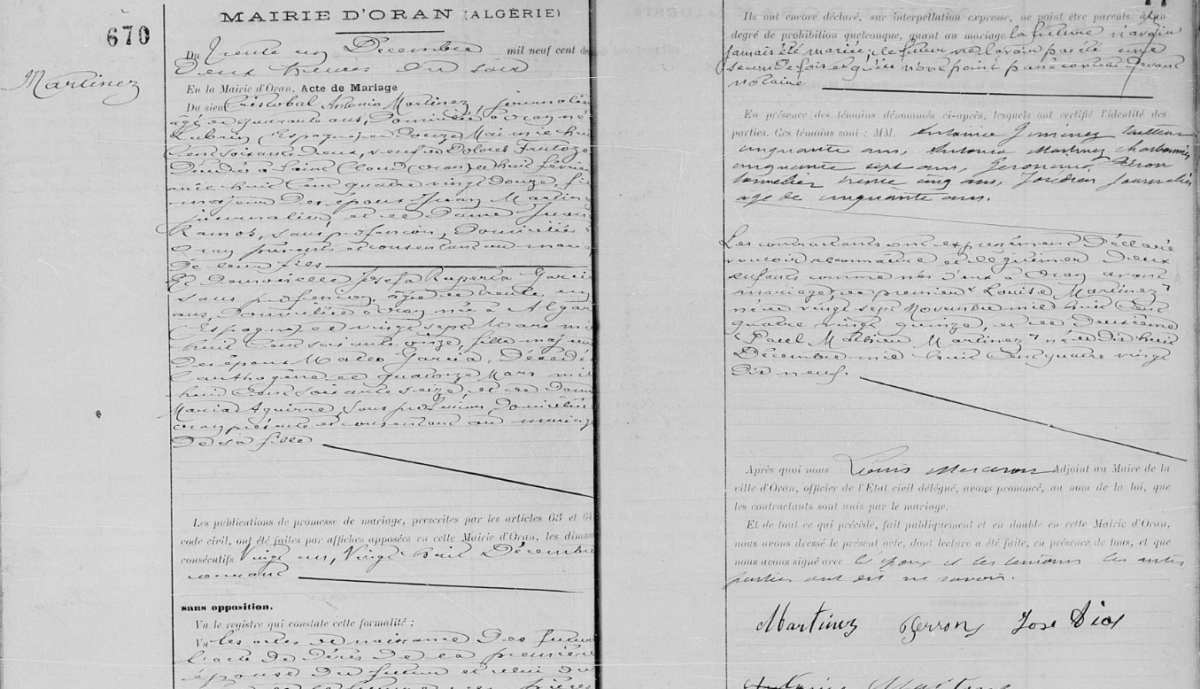 MAIRIE D'ORAN (ALGÉRIE)
670
Martinez
Du trente un Décembre mil neuf cent de
deux heures du soir
En la Mairie d'Oran, Acte de Mariage
Du sieur Cristobal Antonio Martinez, journalie
âgé de quarante ans, domicilié à Oran né
(Espagne) le douze Mai mil hui
cent soixante deux, veuf de Dolores
décédée à Saint Cloud (Oran) le huit février
mil huit cent quatre vingt douze, fi
majeur des époux Juan Martin
journalier et de dame Juana
Ramos, sans profession, domiciliés
Oran présents et consentant au maria
de leur fils
Et demoiselle Josefa Ruperta Garci
sans profession, âgée de trente un
ans, domiciliée à Oran née à
(Espagne) le vingt sept Mars mi
huit cent soixante onze, fille maj
des époux Mateo Garcia, décédé
Carthagène le quatorze Mars mil
huit cent soixante seize, et de dame
Maria Aguirre, sans profession, domiciliée
Oran présente et consentant au mariage
de sa fille
Les publications de promesse de mariage, prescrites par les articles 63 et 64
code civil, ont été faites par affiches apposées en cette Mairie d'Oran, les diman
consécutifs Vingt un, Vingt huit Décembre
courant
sans opposition.
Vu le registre qui constate cette formalité :
Vu les actes de naissance des futurs
l'acte de décès de la première
épouse du futur et celui du
Ils ont encore déclaré, sur interpellation expresse, ne point être parents à un
degré de prohibition quelconque, quant au mariage la future n'avoir
jamais été mariée, le futur ne l'avoir pas été une
seconde fois et qu'ils n'ont point passé contrat devant
notaire
En présence des témoins dénommés ci-après, lesquels ont certifié l'identité des
parties. Ces témoins sont : MM. Antonio Giminez
cinquante ans, Antonio Martinez charbonnier
cinquante sept ans, Geronimo
tonnelier trente cinq ans, José journalier
âgé de cinquante ans.
Les contractants ont expressément déclaré
vouloir reconnaître et légitimer deux
enfants comme nés d'eux à Oran avant
mariage, le premier "Louise Martinez"
née le vingt sept Novembre mil huit cent
quatre vingt quinze, et le deuxième
"Paul Mathieu Martinez" né le dix huit
Décembre mil huit cent quatre vingt
dix neuf.
Après quoi nous Louis Adjoint au Maire de la
ville d'Oran, officier de l'Etat civil délégué, avons prononcé, au nom de la loi, que
les contractants sont unis par le mariage.
Et de tout ce qui précède, fait publiquement et en double en cette Mairie d'Oran,
nous avons dressé le présent acte, dont lecture a été faite, en présence de tous, et que
nous avons signé avec l'époux et les témoins les autres
parties ont dit ne savoir.
Martinez Perrony José Dia
Antonio Martinez